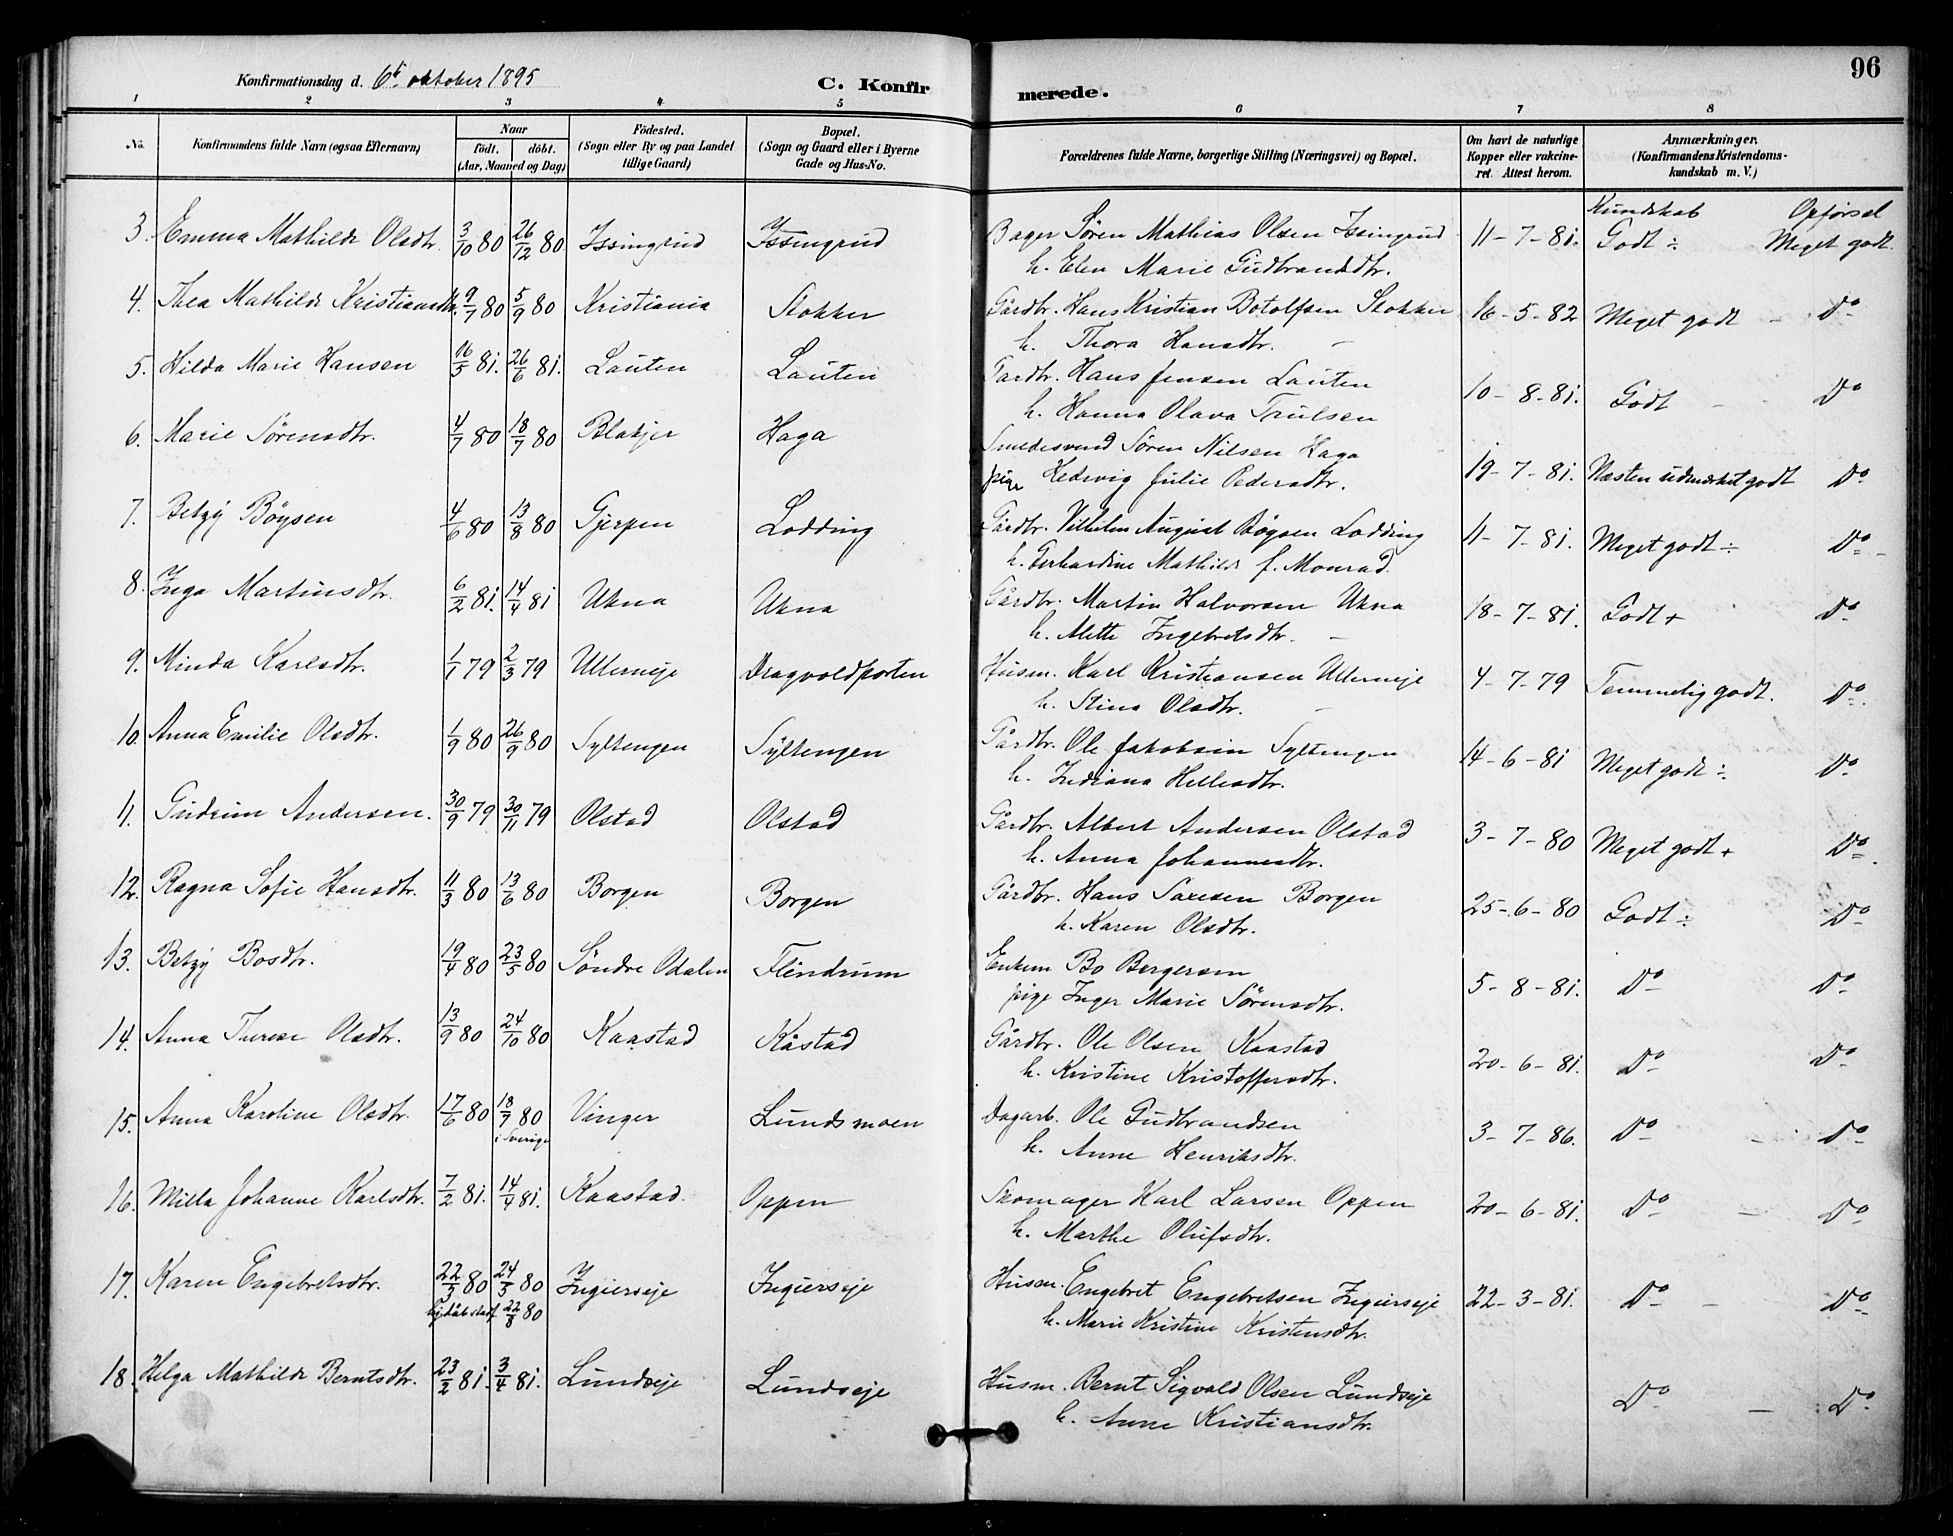 96
Konfirmationsdag d. 6t oktober 1895
C. Konfirmerede.
1 2 3 4 5 6 7 8
No. Konfirmandens fulde Navn (ogsaa Efternavn) Naar født. døbt. (Aar, Maaned og Dag) Fødested. (Sogn eller By og paa Landet tillige Gaard) Bopæl. (Sogn og Gaard eller i Byerne Gade og Hus-No. Forældrenes fulde Navne, borgerlige Stilling (Næringsvei) og Bopæl. Om havt de naturlige Kopper eller vakcineret. Attest herom. Anmærkninger. (Konfirmandens Kristendomskundskab m. V.)
Kundskab Opførsel
3. Emma Mathilde Olsdtr. 3/10 80 26/12 80 Issingrud Issingrud Bager Søren Mathias Olsen Issingrud 11-7-81. Godt ÷ Meget godt.
h. Elen Marie Gudbrandsdtr.
4. Thea Mathilde Kristiansdtr. 9/7 80 5/9 80 Kristiania Stokker Gårdbr. Hans Kristian Botolfsen Stokker 16-5-82 Meget godt - Do
h. Thora Hansdtr. -
5. Hilda Marie Hansen 16/5 81. 26/6 81. Lauten Lauten Gardbr. Hans Jensen Lauten 10-8-81. Godt - Do
h. Hanna Olava Trulsen
6. Marie Sørensdtr. 4/7 80 18/7 80 Blakjer Haga Smedesvend Søren Nilsen Haga 19-7-81. Næsten udmærket godt Do
pige Hedevig Julie Pedersdtr.
7. Betzy Bøysen 4/6 80 13/8 80 Gjerpen Lodding Gårdbr. Vilhelm August Bøysen Lodding 11-7-81. Meget godt ÷ Do
h. Gerhardine Mathilde f. Monrad.
8. Inga Martinsdtr. 6/2 81. 14/4 81 Ukna Ukna Gårdbr. Martin Halvorsen Ukna 18-7-81. Godt + Do
h. Mette Ingebretsdtr. -
9. Minda Karlsdtr. 1/1 79 2/3 79 Ullerneje Dragvoldporten Husm. Karl Kristiansen Ullerneje 4-7-79 Temmelig godt. Do
h. Stina Olsdtr. -
10. Anna Emilie Olsdtr. 1/9 80 26/9 80 Syltengen Syltengen Gårdbr. Ole Jakobsen Syltengen 14-6-81 Meget godt ÷ Do
h. Indiana Hellesdtr.
11. Gudrun Andersen. 30/9 79 30/11 79 Olstad Olstad Gårdbr. Albert Andersen Olstad 3-7-80 Meget godt + Do
h. Anna Johannesdtr.
12. Ragna Sofie Hansdtr. 11/3 80 13/6 80 Borgen Borgen Gårdbr. Hans Saxesen Borgen 25-6-80 Godt ÷ Do
h. Karen Olsdtr.
13. Betzy Bosdtr. 19/4 80 23/5 80 Søndre Odalen Flindrum Enkem Bo Bergersen 5-8-81. Do Do
pige Inger Marie Sørensdtr.
14. Anna Therese Olsdtr. 13/9 80 24/10 80 Kaastad Kåstad Gårdbr. Ole Olsen Kaastad 20-6-81. Do Do
h. Kristine Kristoffersdtr.
15. Anna Karoline Olsdtr. 17/6 80 18/7 80 Vinger Lundsmoen Dagarb. Ole Gudbrandsen 3-7-86. Do Do
i Sverige h. Anne Henriksdtr.
16. Milla Johanne Karlsdtr. 7/2 81. 14/4 81. Kaastad. Oppen Skomager Karl Larsen Oppen 20-6-81. Do - Do
h. Marthe Olufsdtr.
17. Karen Engebretsdtr. 22/3 80 24/3 80 Ingierseje Ingierseje Husm. Engebret Engebretsen Ingierseje 22-3-81. Do - Do
22/8 80 h. Marie Kristine Kristensdtr.
18. Helga Mathilde Berntsdtr. 23/2 81. 3/4 81. Lundseje Lundseje Husm. Bernt Sigvald Olsen Lundseje Do - Do
h. Anne Kristiansdtr.